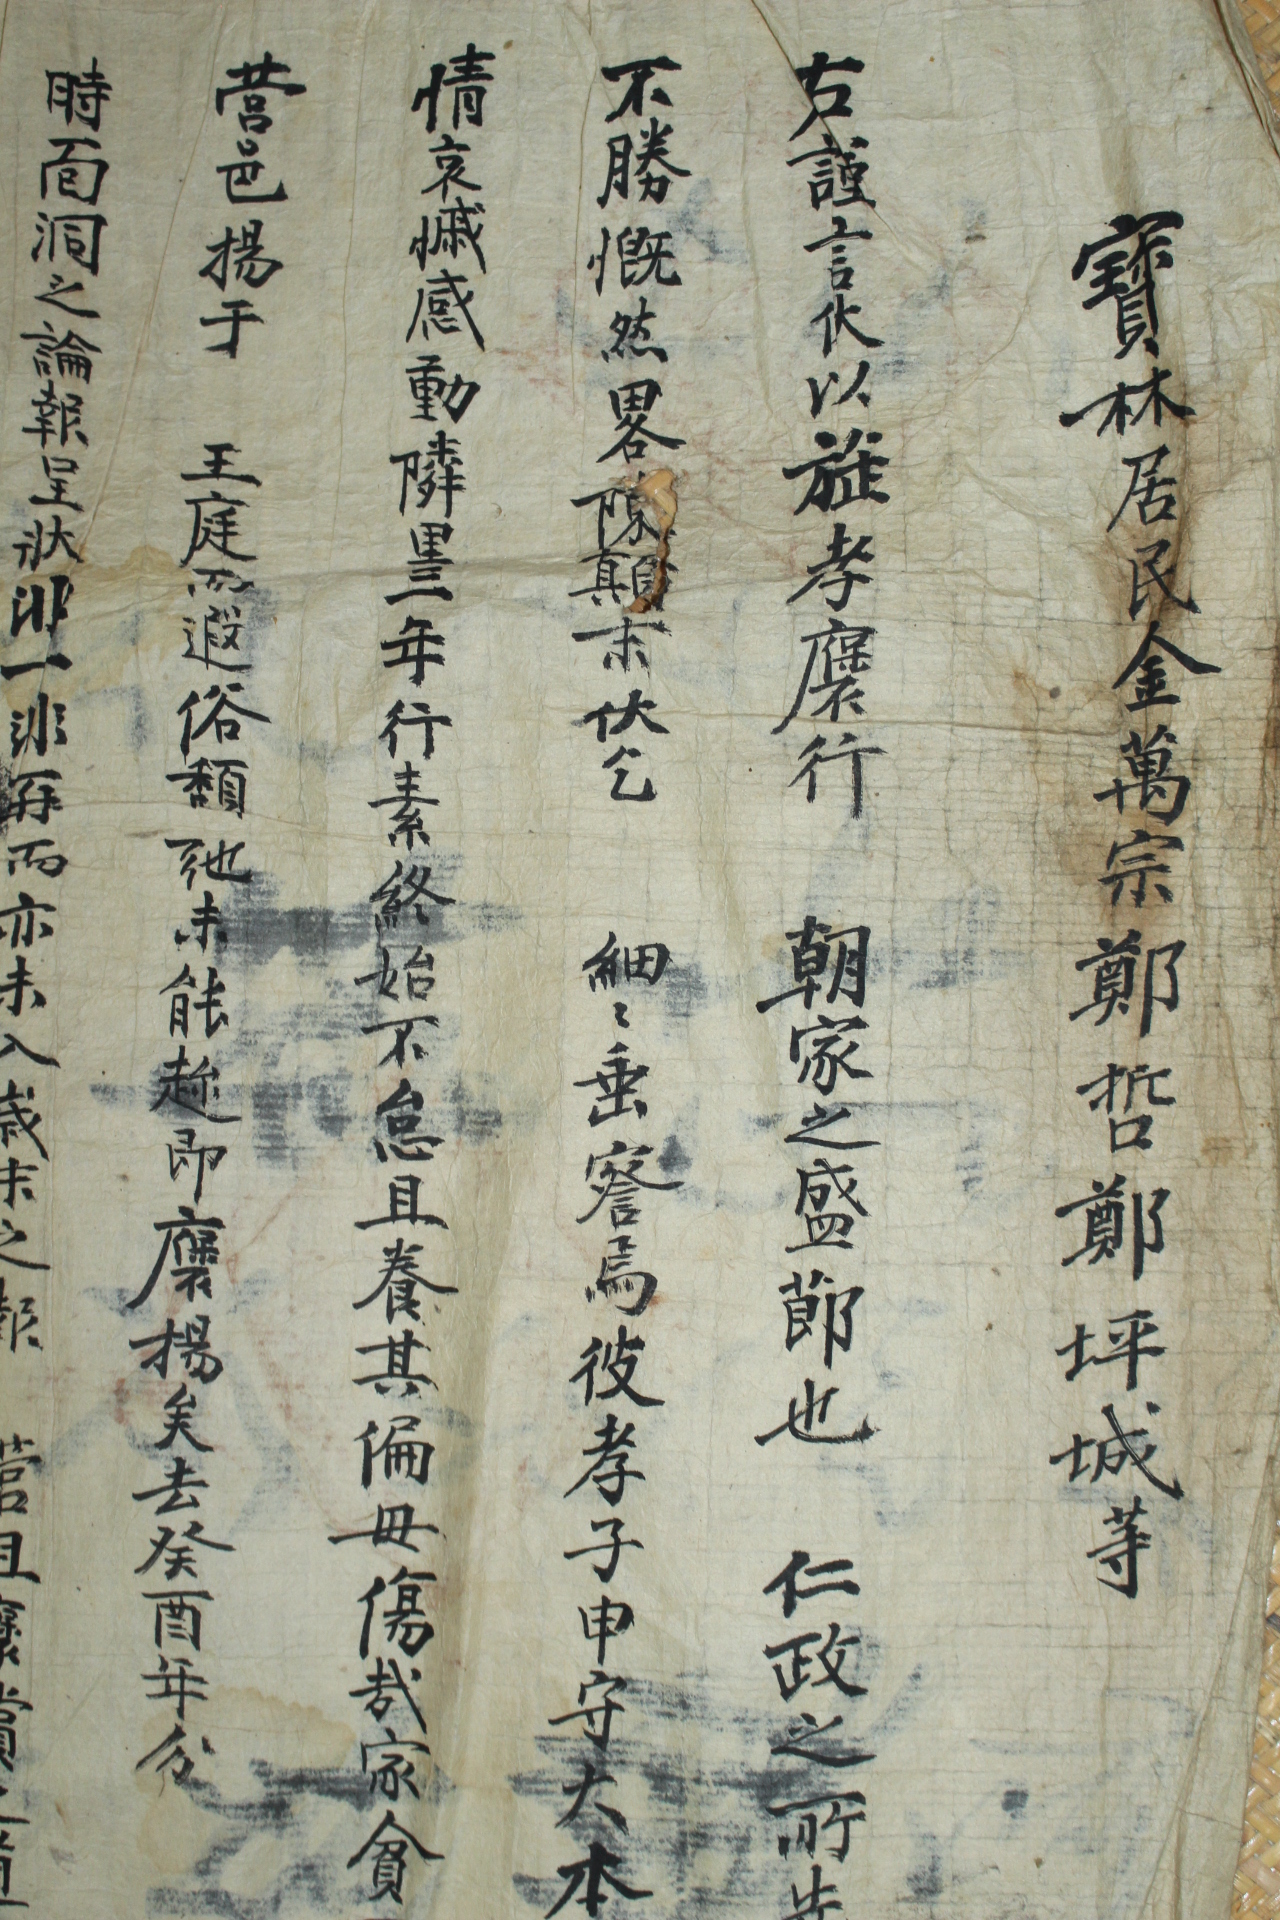 寶林居民金萬宗鄭哲鄭坪城等
右謹言伏以旌孝褒行 朝家之盛節也 仁政之所先
不勝慨然畧陳顛末伏乞 細〻垂察焉彼孝子申守大本
情哀慽感動隣里三年行素終始不怠且養其偏母傷哉家貧
營邑揚于 王庭而遐俗頹弛未能趂即褒揚矣去癸酉年分
時面洞之論報呈狀非一非再而亦未入歲末之報 營且褒賞之道